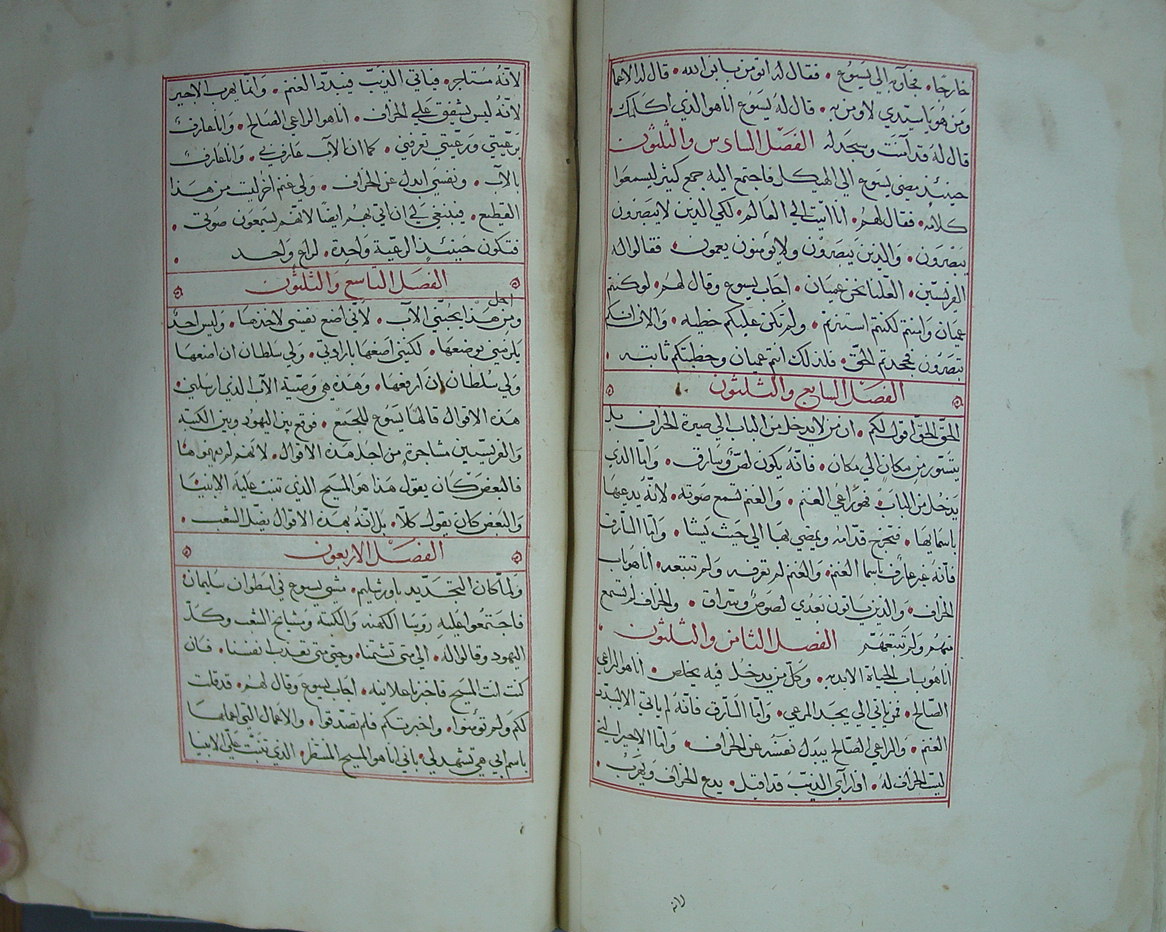 خارجًا • فجآ به الى يسوع • فقال له اتومن بابن الله • قال له الاعما
ومن هو يا سيدي لاومن به • قال له يسوع انا هو الذي اكلمك •
قال له قد آمنت وسجد له الفصل السادس والثلثون
حينئذ مضى يسوع الى الهيكل فاجتمع اليه جمع كثير ليسمعوا
كلامه • فقال لهم • انا اتيت الى العالم • لكي الذين لا يبصرون
يبصرون • والذين يبصرون ولا يومنون يعمون • فقالوا له
الفريسيين • العلنا نحن عميان • اجاب يسوع وقال لهم • لو كنتم
عميان وامنتم لكنتم استنرتم • ولم تكن عليكم خطيه • والان انكم
تبصرون فجحدتم الحق • فلذلك انتم عميان وخطيتكم ثابته •
الفصل السابع والثلثون
الحق الحق اقول لكم • ان من لا يدخل من الباب الى صيرة الخراف بل
يتسور من مكان الى مكان • فانه يكون لصّ وسارق • وامّا الذي
يدخل من الباب فهو راعي الغنم • والغنم تسمع صوته • لانه يدعيها
باسمايها • فتخرج قدامه ويمضي بها الى حيث يشا • وامّا السارق
فانه غير عارف باسما الغنم • والغنم لم تعرفه ولم تتبعه • انا هو باب
الخراف • والذين ياتون بعدي لصوص وسراق • والخراف لم تسمع
منهم ولم تتبعهم الفصل الثامن والثلثون •
انا هو باب الحياة الابديه • وكل من يدخل فيه يخلص • انا هو الراعي
الصالح • فمن ياتي الي يجد المرعى • وامّا السارق فانه لم ياتي الا ليبدد
الغنم • والراعي الصالح يبدل نفسه عن الخراف • وامّا الاجير الذي
ليست الخراف له • اذا راى الذيب قد اقبل • يدع الخراف ويهرب •
لانه
لانّه مُستاجر • فياتي الذيب فيبدد الغنم • وانما يهرب الاجير
لانه ليس يشفق على الخراف • انا هو الراعي الصالح • وانا عارف
برعيتي ورعيتي تعرفني • كما ان الآب عارف بي • وانا عارف
بالآب • ونفسي ابدل عن الخراف • ولي غنم اخر ليست من هذا
القطيع • فينبغي لي ان اتي بهم ايضًا لانهم يسمعون صوتي •
فتكون حينئذٍ الرعية واحدة • لراعٍ واحد •
الفصل التاسع والثلثون
اجل
ومن هذا يحبّني الآب • لاني اضع نفسي لاخذها • وليس احدٌ
يلزمني بوضعها • لكنني اضعها بارادتي • ولي سلطان ان اضعها
ولي سلطان ان ارفعها • وهذه هي وصية الآب الذي ارسلني •
هذه الاقوال قالها يسوع للجميع • فوقع بين اليهود وبين الكتبه
والفريسيين مشاجرة من اجل هذه الاقوال • لانهم لم يفهموها
فالبعض كان يقول هذا هو المسيح الذي تنبت عليه الانبيا
والبعض كان يقول كلا • بل انه بهذه الاقوال يضل الشعب •
الفصل الاربعون
ولمّا كان التجديد باورشليم • مشى يسوع في اسطوان سليمان
فاجتمعوا عليه روسا الكهنه والكتبه ومشايخ الشعب وكل
اليهود وقالوا له • الى متى تشتمنا • وحتى متى تعذب انفسنا • فان
كنت انت المسيح فاخبرنا علانيه • اجاب يسوع وقال لهم • قد قلت
لكم ولم تؤمنوا • واخبرتكم فلم تصدقوا • والاعمال التي اعملها
باسم ابي هي تشهد لي • باني انا هو المسيح المنتظر • الذي تنبت علي الانبيا